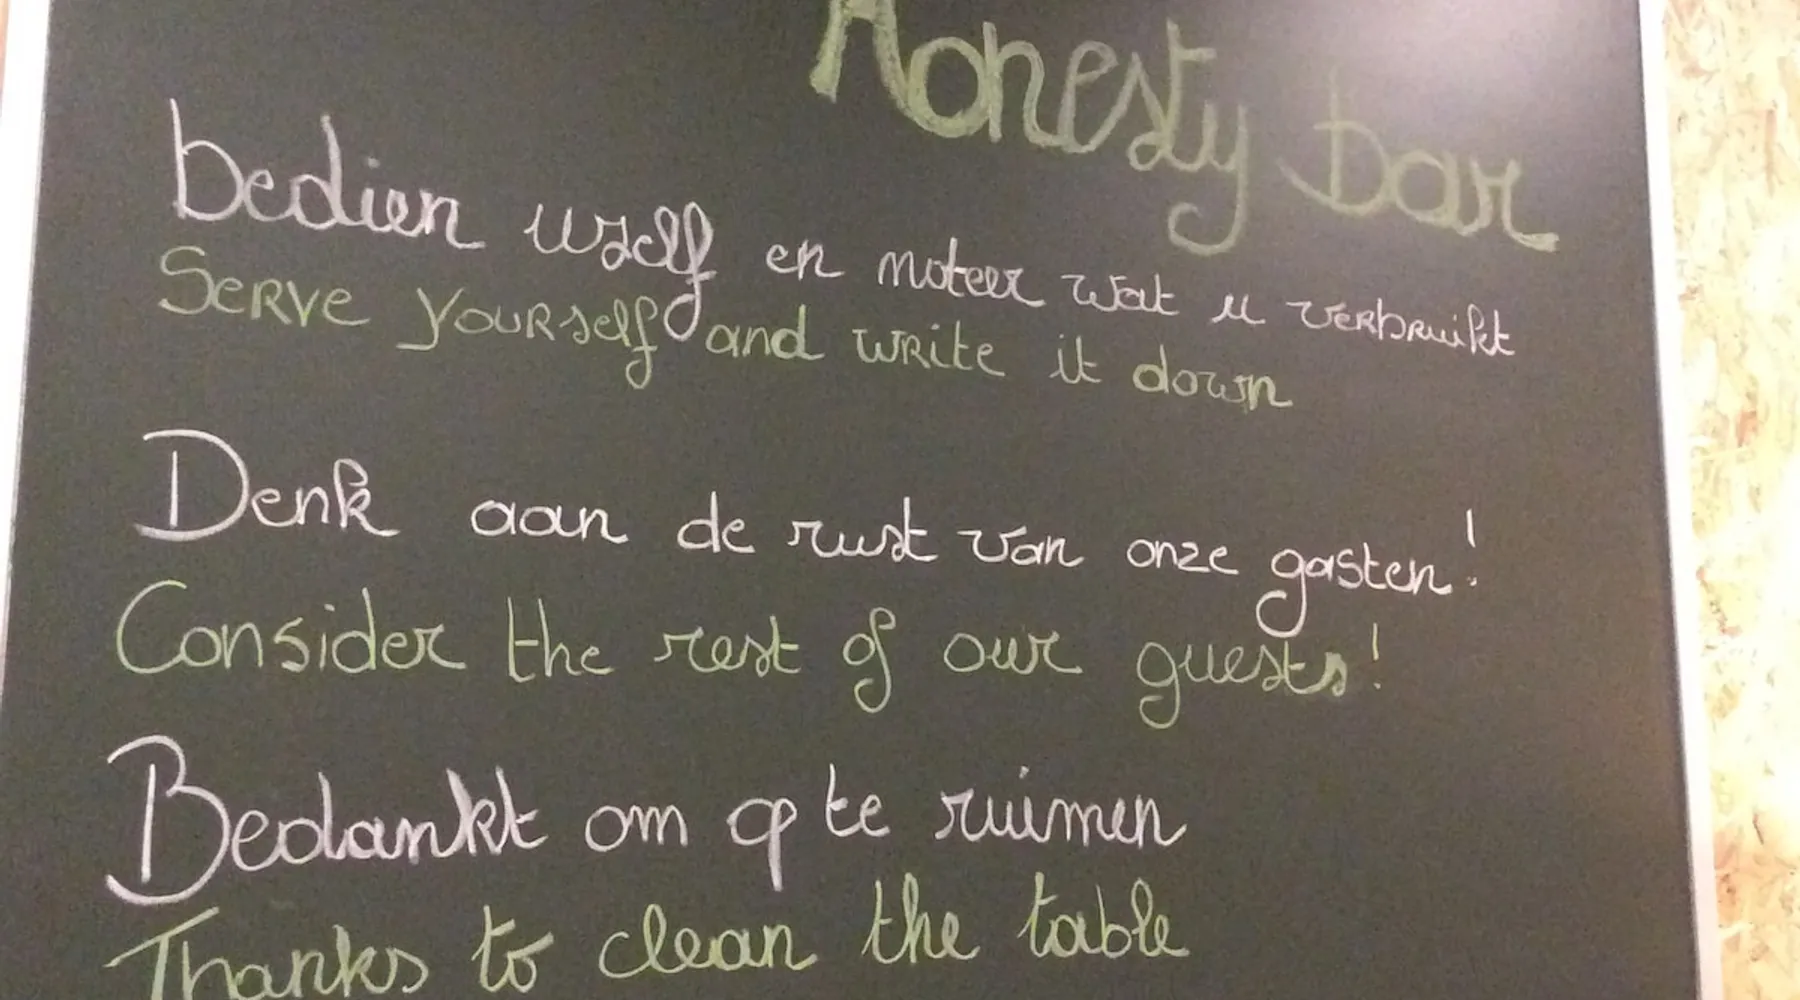 Honesty bar
bedien uzelf en noteer wat u verbruikt
Serve yourself and write it down
Denk aan de rust van onze gasten!
Consider the rest of our guests!
Bedankt om op te ruimen
Thanks to clean the table